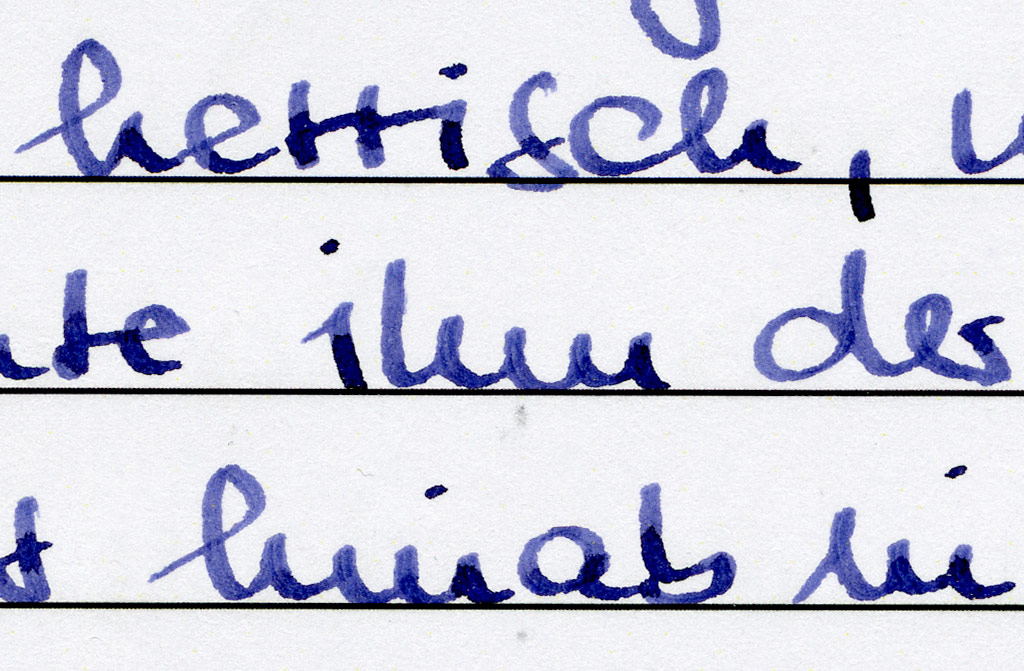 hettisch,
ihm des
hinab in